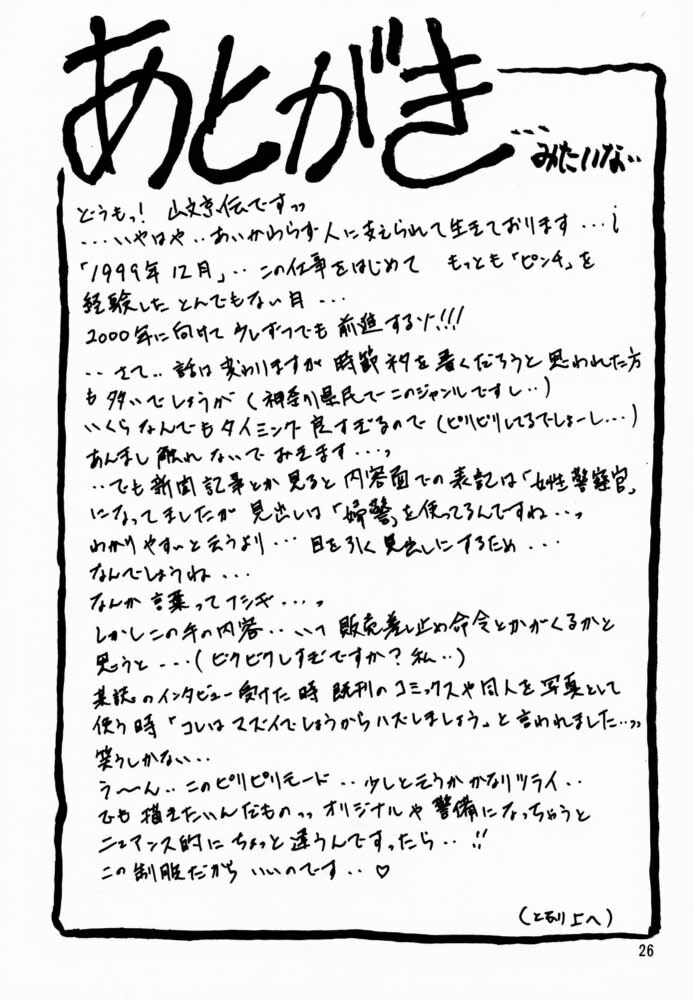 あとがき
…みたいな…
どうもっ! 山文京伝ですっっ
…いやはや‥あいかわらず人に支えられて生きております…
「1999年12月」‥この仕事をはじめて もっとも「ピンチ」を
経験した とんでもない月…
2000年に向けて 少しずつでも 前進するゾ!!!
‥さて‥話は変わりますが 時節ネタを書くだろうと思われた方
も多いでしょうが (神奈川県民で このジャンルですし‥)
いくらなんでもタイミング良すぎるので (ピリピリしてるでしょーし…)
あんまし触れないでおきます…っ
‥でも新聞記事とか見ると 内容面での表記は「女性警察官」
になってましたが 見出しは「婦警」を使ってるんですね…っ
わかりやすいと云うより… 目を引く見出しにするため…
なんでしょうね…
なんか言葉ってフシギ…っ
しかしこの手の内容‥いつ販売差し止め命令とかがくるかと
思うと…(ビクビクしすぎですか?私‥)
某誌のインタビュー受けた時 既刊のコミックスや同人を写真として
使う時「コレはマズイでしょうからハズしましょう」と言われました…っっ
笑うしかない‥
う〜ん‥このピリピリモード‥少しと云うか かなりツライ‥
でも描きたいんだものっっ オリジナルや警備になっちゃうと
ニュアンス的にちょっと違うんですったら‥!!
この制服だから いいのです‥♡
(となり上へ)
26